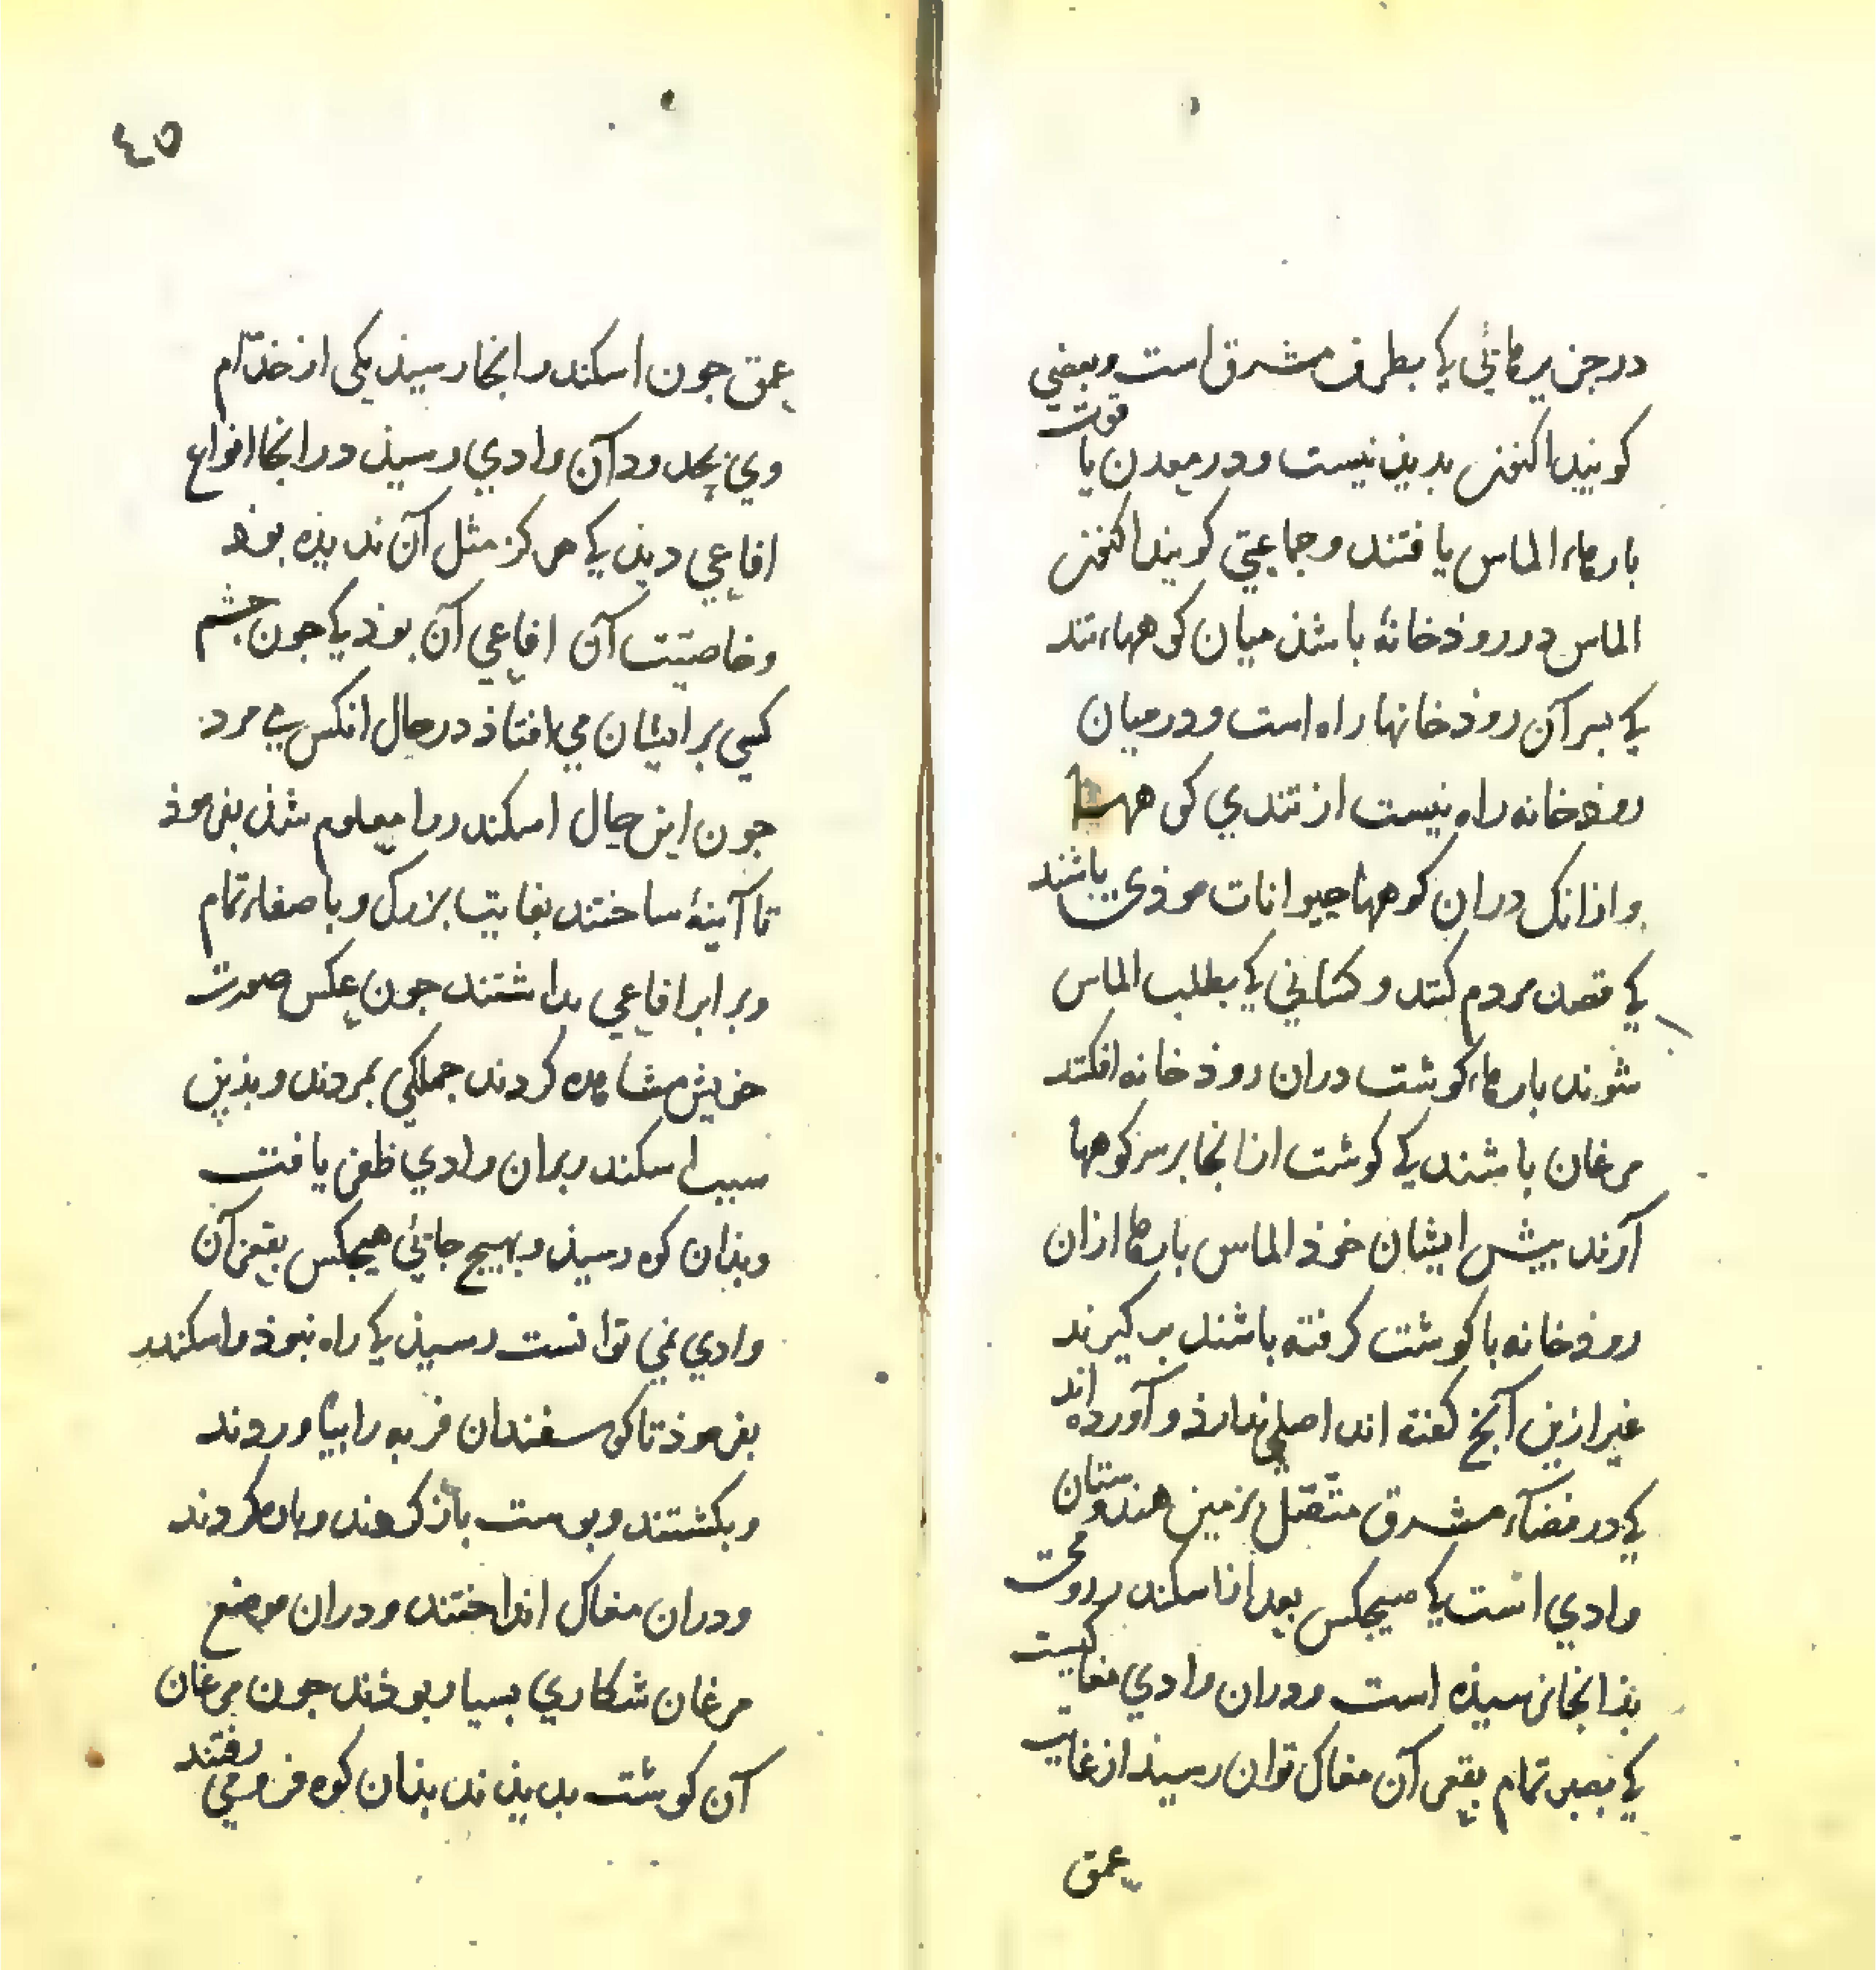 در جزیرهائی کی بطرف مشرق است و بعضی
کویند اکنون بدید نیست و در معدن یاقوت
بارهاء الماس یافتند و جماعتی کویند اکنون
الماس در روذخانهٔ باشذ میان کوههاء تند
کی بسر آن روذخانها راه است و در میان
روذخانه راه نیست از تندی کوهها
و ازانک دران کوهها حیوانات موذی باشند
کی قصد مردم کنند و کسانی کی بطلب الماس
شوند بارهاء کوشت دران روذخانه افکنند
مرغان باشند کی کوشت ازانجا بر سر کوهها
آرند بیش ایشان خوذ الماس بارها ازان
روذخانه با کوشت کرفته باشند بر کیرند
غیر ازین آنج کفته اند اصلی ندارذ و آورده اند
کی در فضاء مشرق متصل بزمین هندوستان
وادی است کی هیچکس بعد از اسکندر رومی
بذانجا نرسیذه است و دران وادی مغاکیست
کی ببصر تمام بقعر آن مغاک توان رسیذ از غایت
عمق
٤٥
عمق جون اسکندر انجا رسیذ یکی از خدّام
وی بحدود آن وادی رسیذ در انجا انواع
افاعی دیذ کی هرکز مثل آن ندیذه بوذ
و خاصیّت آن افاعی آن بوذ کی جون جشم
کسی بر ایشان می افتاذ در حال انکس می مرد
جون این حال اسکندر را معلوم شذ بفرموذ
تا آینهٔ ساختند بغایت بزرک و با صفاء تمام
و برابر افاعی بداشتند جون عکس صورت
خویش مشاهده کردند جملکی بمردند و بذین
سبب اسکندر بران وادی ظفر یافت
و بذان کوه رسیذ و بهیچ جائی هیچکس بقعر آن
وادی نمی توانست رسیذ کی راه نبوذ و اسکندر
بفرموذ تا کوسفندان فربه را بیاوردند
و بکشتند و بوست باز کردند و باره کردند
و دران مغاک انداختند و دران موضع
مرغان شکاری بسیار بوذند جون مرغان
آن کوشت بدیذند بذان کوه فرو می رفتند